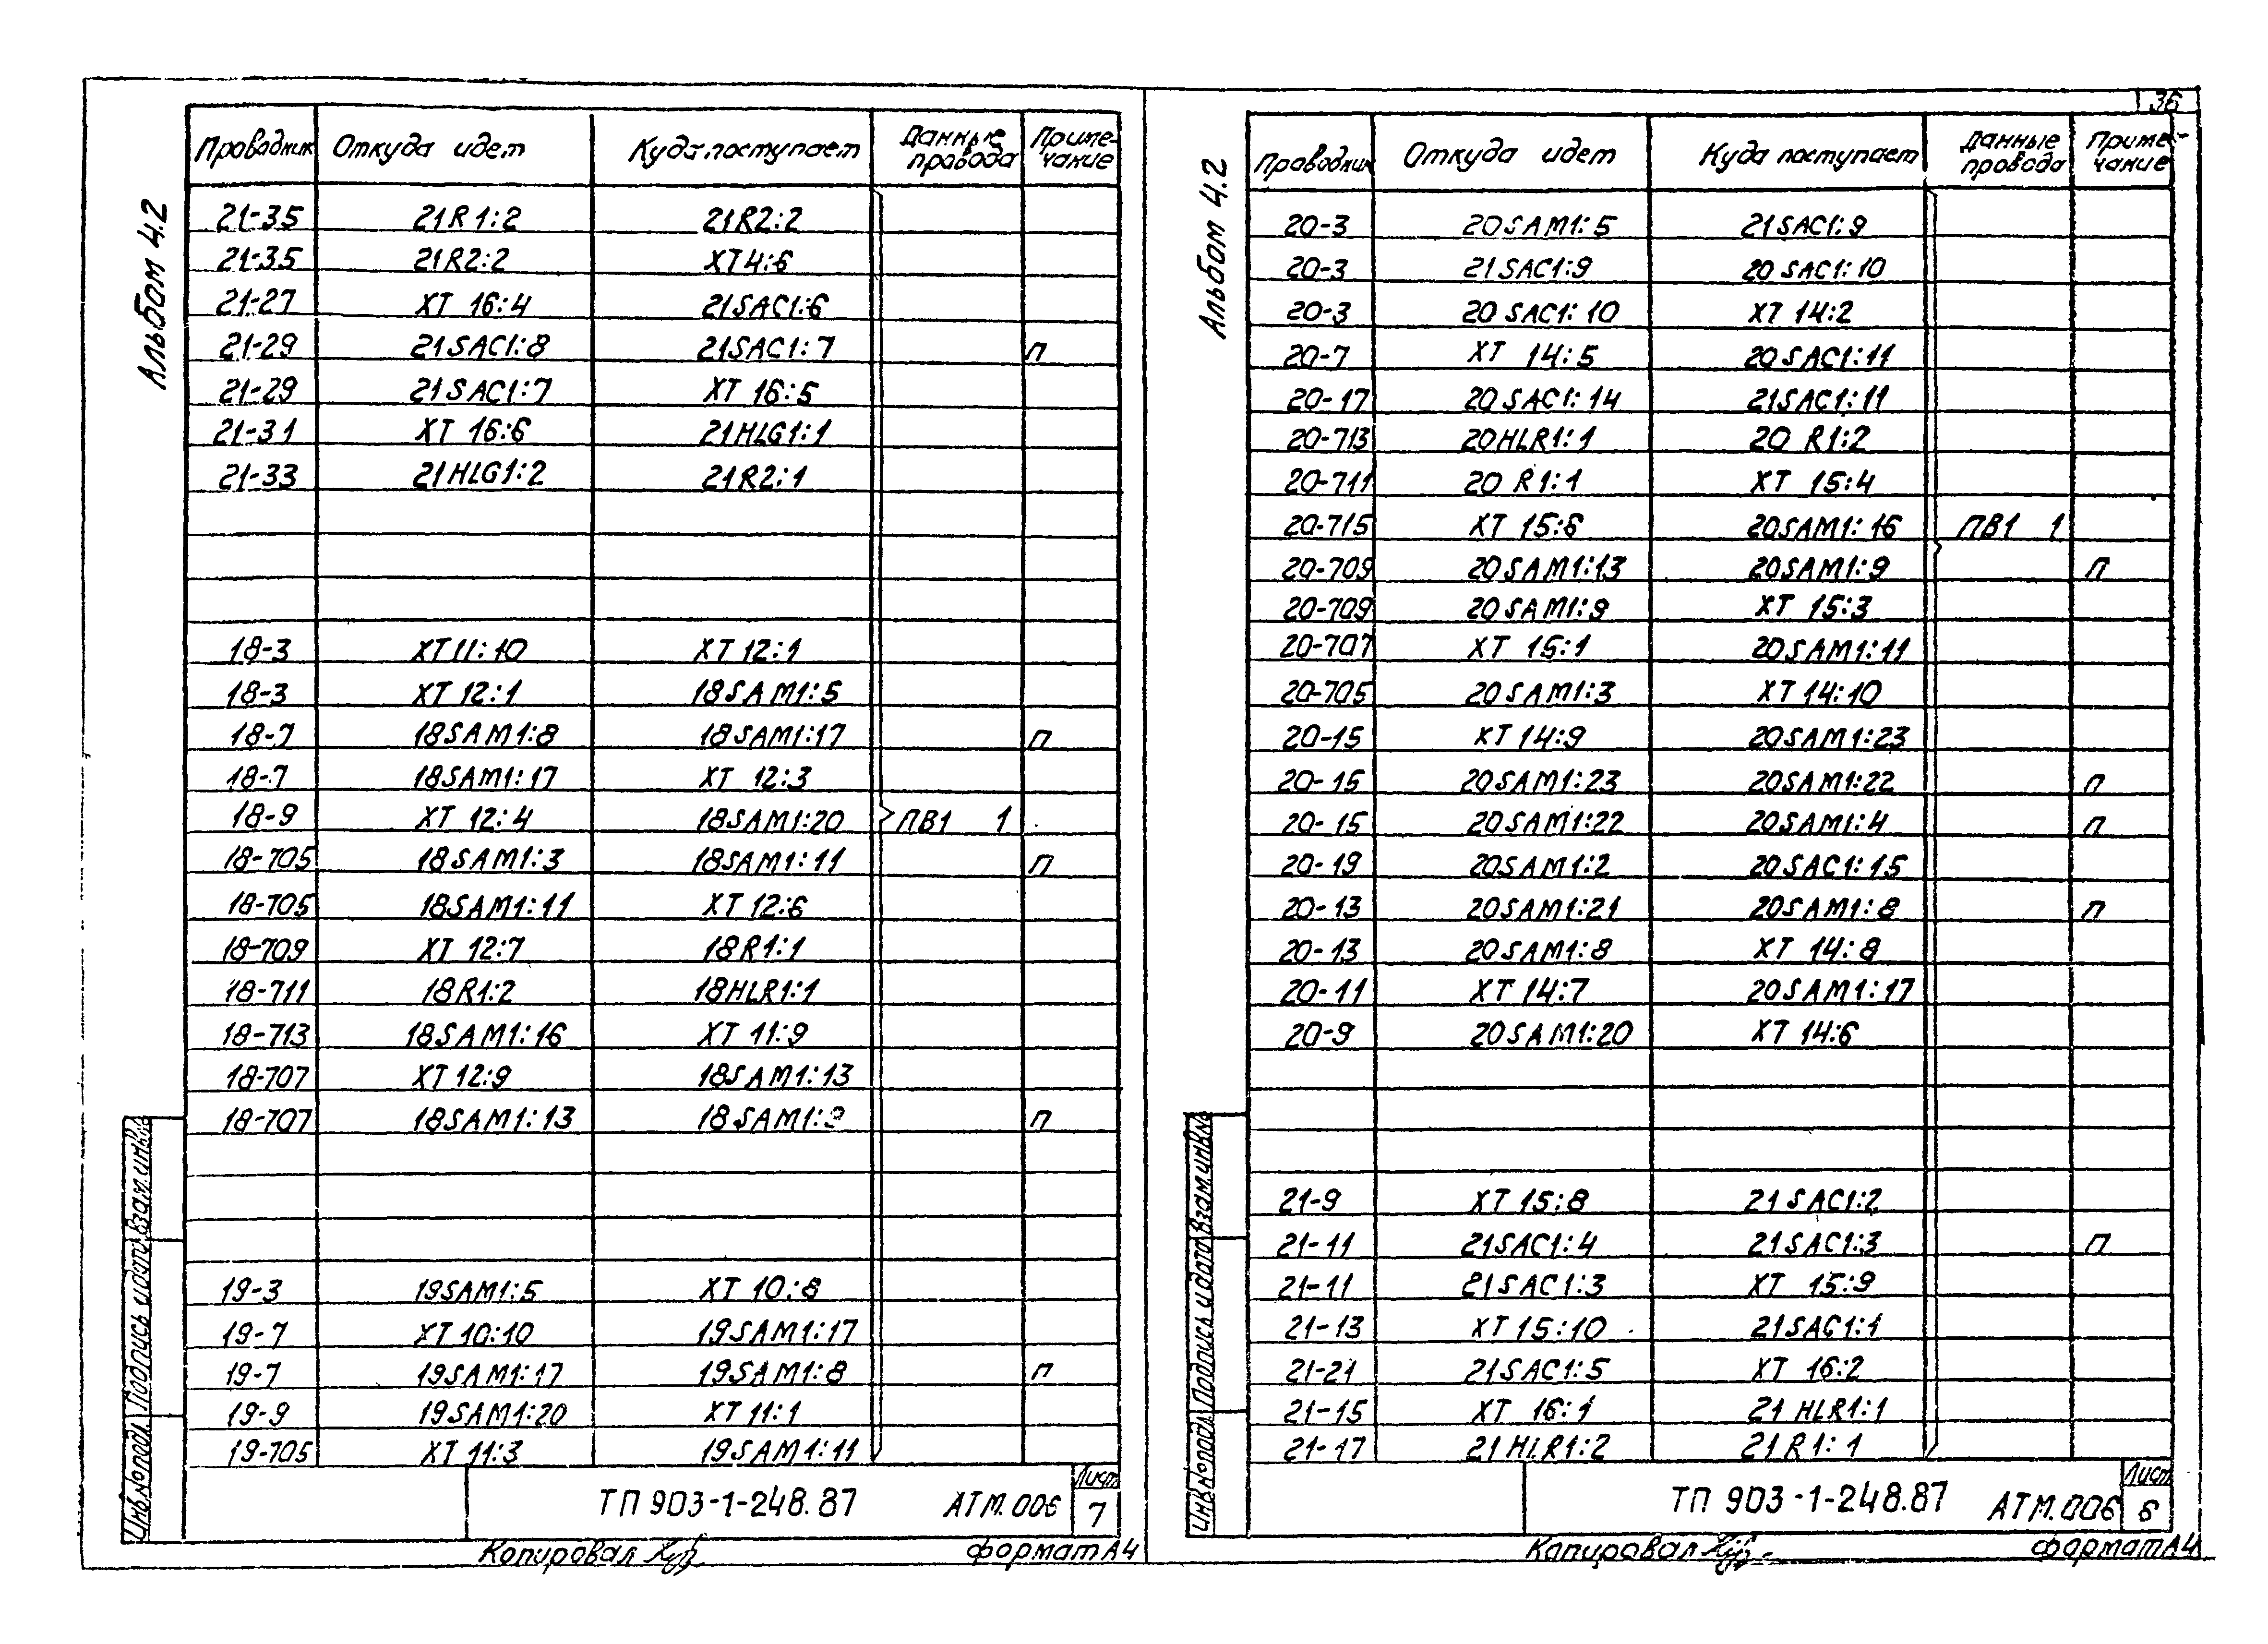 Альбом 4.2
Проводник Откуда идет Куда поступает Данные провода Примечание
21-35 21R1:2 21R2:2
21-35 21R2:2 XT4:6
21-27 XT 16:4 21SAC1:6
21-29 21SAC1:8 21SAC1:7 П
21-29 21SAC1:7 XT 16:5
21-31 XT 16:6 21HLG1:1
21-33 21HLG1:2 21R2:1
18-3 XT11:10 XT12:1
18-3 XT12:1 18SAM1:5
18-7 18SAM1:8 18SAM1:17 П
18-7 18SAM1:17 XT 12:3
18-9 XT 12:4 18SAM1:20 ПВ1 1
18-705 18SAM1:3 18SAM1:11 П
18-705 18SAM1:11 XT12:6
18-709 XT 12:7 18R1:1
18-711 18R1:2 18HLR1:1
18-713 18SAM1:16 XT 11:9
18-707 XT12:9 18SAM1:13
18-707 18SAM1:13 18SAM1:9 П
19-3 19SAM1:5 XT 10:8
19-7 XT10:10 19SAM1:17
19-7 19SAM1:17 19SAM1:8 П
19-9 19SAM1:20 XT11:1
19-705 XT 11:3 19SAM1:11
Инв.№ подл. Подпись и дата Взам.инв.№
ТП 903-1-248.87 АТМ.006 Лист 7
Копировал
формат А4
36
Альбом 4.2
Проводник Откуда идет Куда поступает Данные провода Примечание
20-3 20SAM1:5 21SAC1:9
20-3 21SAC1:9 20SAC1:10
20-3 20SAC1:10 XT 14:2
20-7 XT 14:5 20SAC1:11
20-17 20SAC1:14 21SAC1:11
20-713 20HLR1:1 20 R1:2
20-711 20 R1:1 XT 15:4
20-715 XT 15:6 20SAM1:16 ПВ1 1
20-709 20SAM1:13 20SAM1:9 П
20-709 20SAM1:9 XT 15:3
20-707 XT 15:1 20SAM1:11
20-705 20SAM1:3 XT14:10
20-15 XT14:9 20SAM1:23
20-15 20SAM1:23 20SAM1:22 П
20-15 20SAM1:22 20SAM1:4 П
20-19 20SAM1:2 20SAC1:15
20-13 20SAM1:21 20SAM1:8 П
20-13 20SAM1:8 XT 14:8
20-11 XT14:7 20SAM1:17
20-9 20SAM1:20 XT 14:6
21-9 XT15:8 21SAC1:2
21-11 21SAC1:4 21SAC1:3 П
21-11 21SAC1:3 XT 15:9
21-13 XT15:10 21SAC1:1
21-21 21SAC1:5 XT 16:2
21-15 XT 16:1 21HLR1:1
21-17 21HLR1:2 21R1:1
Инв.№ подл. Подпись и дата Взам.инв.№
ТП 903-1-248.87 АТМ.006 Лист 6
Копировал
формат А4